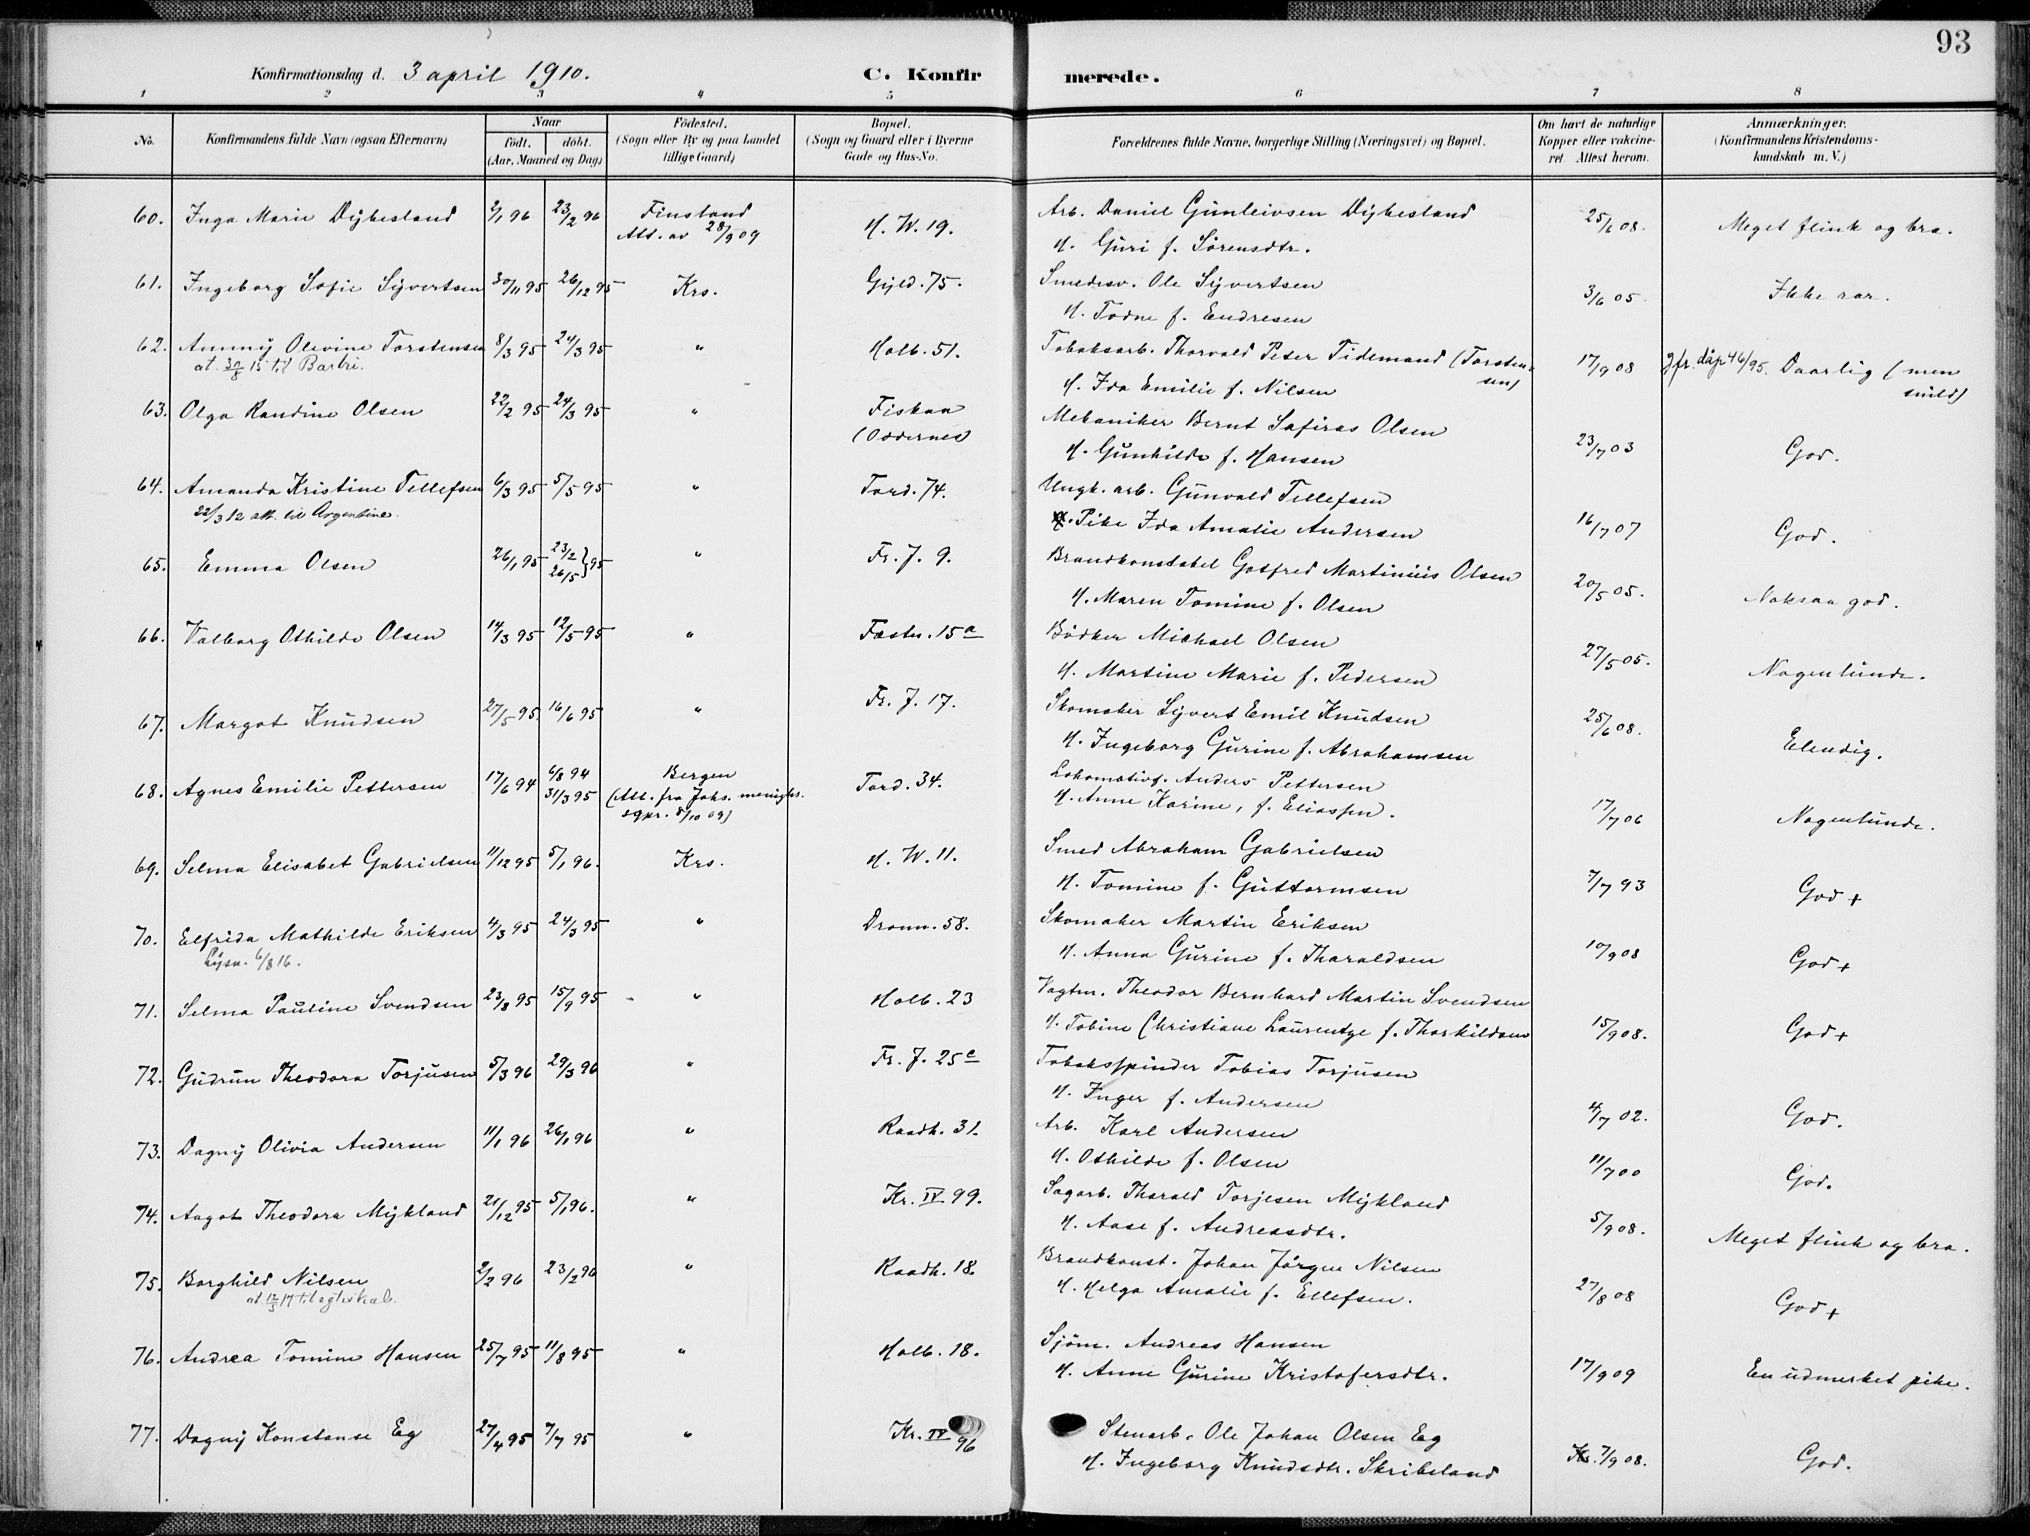 93
Konfirmationsdag d. 3 april 1910. C. Konfirmerede.
1 2 3 4 5 6 7 8
No. Konfirmandens fulde Navn (ogsaa Efternavn) Naar født. døbt. (Aar, Maaned og Dag) Fødested. (Sogn eller By og paa Landet tillige Gaard) Bopæl. (Sogn og Gaard eller i Byerne Gade og Hus-No. Forældrenes fulde Navne, borgerlige Stilling (Næringsvei) og Bopæl. Om havt de naturlige Kopper eller vakcineret. Attest herom. Anmærkninger. (Konfirmandens Kristendomskundskab m. V.)
60. Inga Marie Dybesland 2/1 96 23/2 96 Finsland H. W. 19. Arb. Daniel Gunleivsen Dybesland 25/6 08. Meget flink og bra.
Att. av 28/9 09
H. Guri f. Sørensdtr.
61. Ingeborg Sofie Syvertsen 30/11 95 26/12 95 Krs. Gyld. 75. Smedesv. Ole Syvertsen 3/6 05. Ikke rar.
H. Todne f. Endresen
62. Ammy Olevine Torstensen 8/3 95 24/3 95 " Holb. 51. Tobaksarb. Thorvald Peter Tidemand (Torstensen) 17/9 08 Jfr. dåp 46/95. Daarlig (men snild)
at. 30/8 15 til Barbri.
H. Ida Emilie f. Nilsen
63. Olga Randine Olsen 22/2 95 24/3 95 " Fiskaa Mekaniker Bernt Safiras Olsen
(Oddernes
H. Gunhilde f. Hansen 23/7 03 God.
64. Amanda Kristine Tellefsen 6/3 95 5/5 95 " Tord. 74. Ungk. arb. Gunvald Tellefsen
22/3 12 att. til Argentine.
Pike Ida Amalie Andersen 16/7 07 God.
65. Emma Olsen 26/1 95 23/2 26/5 } 95 " Fr. J. 9. Brandkonstabel Gotfred Martinius Olsen
H. Maren Tomine f. Olsen 20/5 05. Noksaa god.
66. Valborg Othilde Olsen 14/3 95 12/5 95 " Fæstn. 15 a Bødker Michael Olsen
H. Martine Marie f. Pedersen 27/5 05. Nogenlunde.
67. Margot Knudsen 27/5 95 16/6 95 " Fr. J. 17. Skomaker Syvert Emil Knudsen
H. Ingeborg Gurine f. Abrahamsen 25/6 08. Elendig.
68. Agnes Emilie Pettersen 17/6 94 6/8 94 Bergen Tord. 34. Lokomotivf. Anders Pettersen
31/3 95 (Att. fra Johs. menighs. sgpr. 5/10 09)
H. Anne Karine, f. Eliassen. 17/7 06 Nogenlunde.
69. Selma Elisabet Gabrielsen 11/12 95 5/1 96. Krs. H. W. 11. Smed Abraham Gabrielsen
H. Tomine f. Guttormsen 7/7 93 God +
70. Elfrida Mathilde Eriksen 4/3 95 24/3 95 " Dronn. 58. Skomaker Martin Eriksen
Lysn. 6/8 16.
H. Anna Gurine f. Tharaldsen 10/9 08 God +
71. Selma Pauline Svendsen 23/8 95 15/9 95 " Holb. 23 Vagtm. Theodor Bernhard Martin Svendsen
H. Tobine Christiane Laurentze f. Thorkildsen 15/9 08. God +
72. Gudrun Theodora Torjusen 5/3 96 29/3 96 " Fr. J. 25 c Tobaksspinder Tobias Torjusen
H. Inger f. Andersen 4/7 02. God.
73. Dagny Olivia Andersen 11/1 96 26/1 96 " Raadh. 31. Arb. Karl Andersen
H. Othilde f. Olsen 11/7 00 God.
74. Aagot Theodora Mykland 21/12 95 5/1 96. " Kr. IV 99. Sagarb. Tharald Torjesen Mykland
H. Aase f. Andreasdtr. 5/9 08. Meget flink og bra.
75. Borghild Nilsen 2/2 96 23/2 96 " Raadh. 18. Brandkonst. Johan Jörgen Nilsen
at 12/5 17 til egteskab.
H. Helga Amalie f. Ellefsen. 27/8 08 God +
76. Andrea Tomine Hansen 25/7 95 11/8 95 " Holb. 18. Sjöm. Andreas Hansen
H. Anne Gurine Kristofersdtr. 17/9 09 En udmerket pike.
77. Dagny Konstanse Eg 27/4 95 7/7 95 " Kr. IV 96 Stenarb. Ole Johan Olsen Eg
H. Ingeborg Knudsdtr. Skribeland 7/9 08. God.